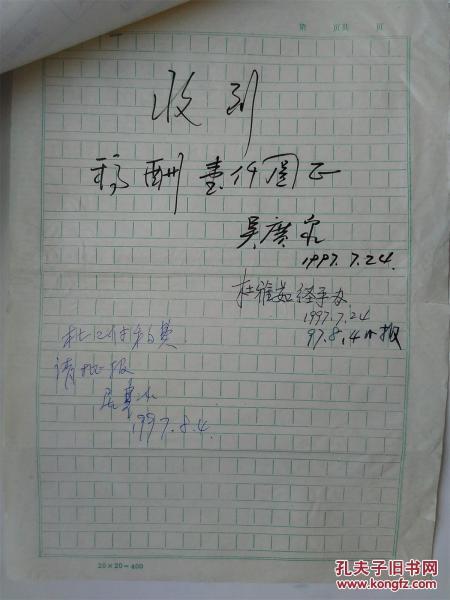 第 页共 页
收到
稿酬壹仟圆正
吴广泉
1997.7.24.
杜雅茹经手办
1997.7.24
97.8.4 报
请批报
1997.8.4.
20×20=400
孔夫子旧书网
www.kongfz.com